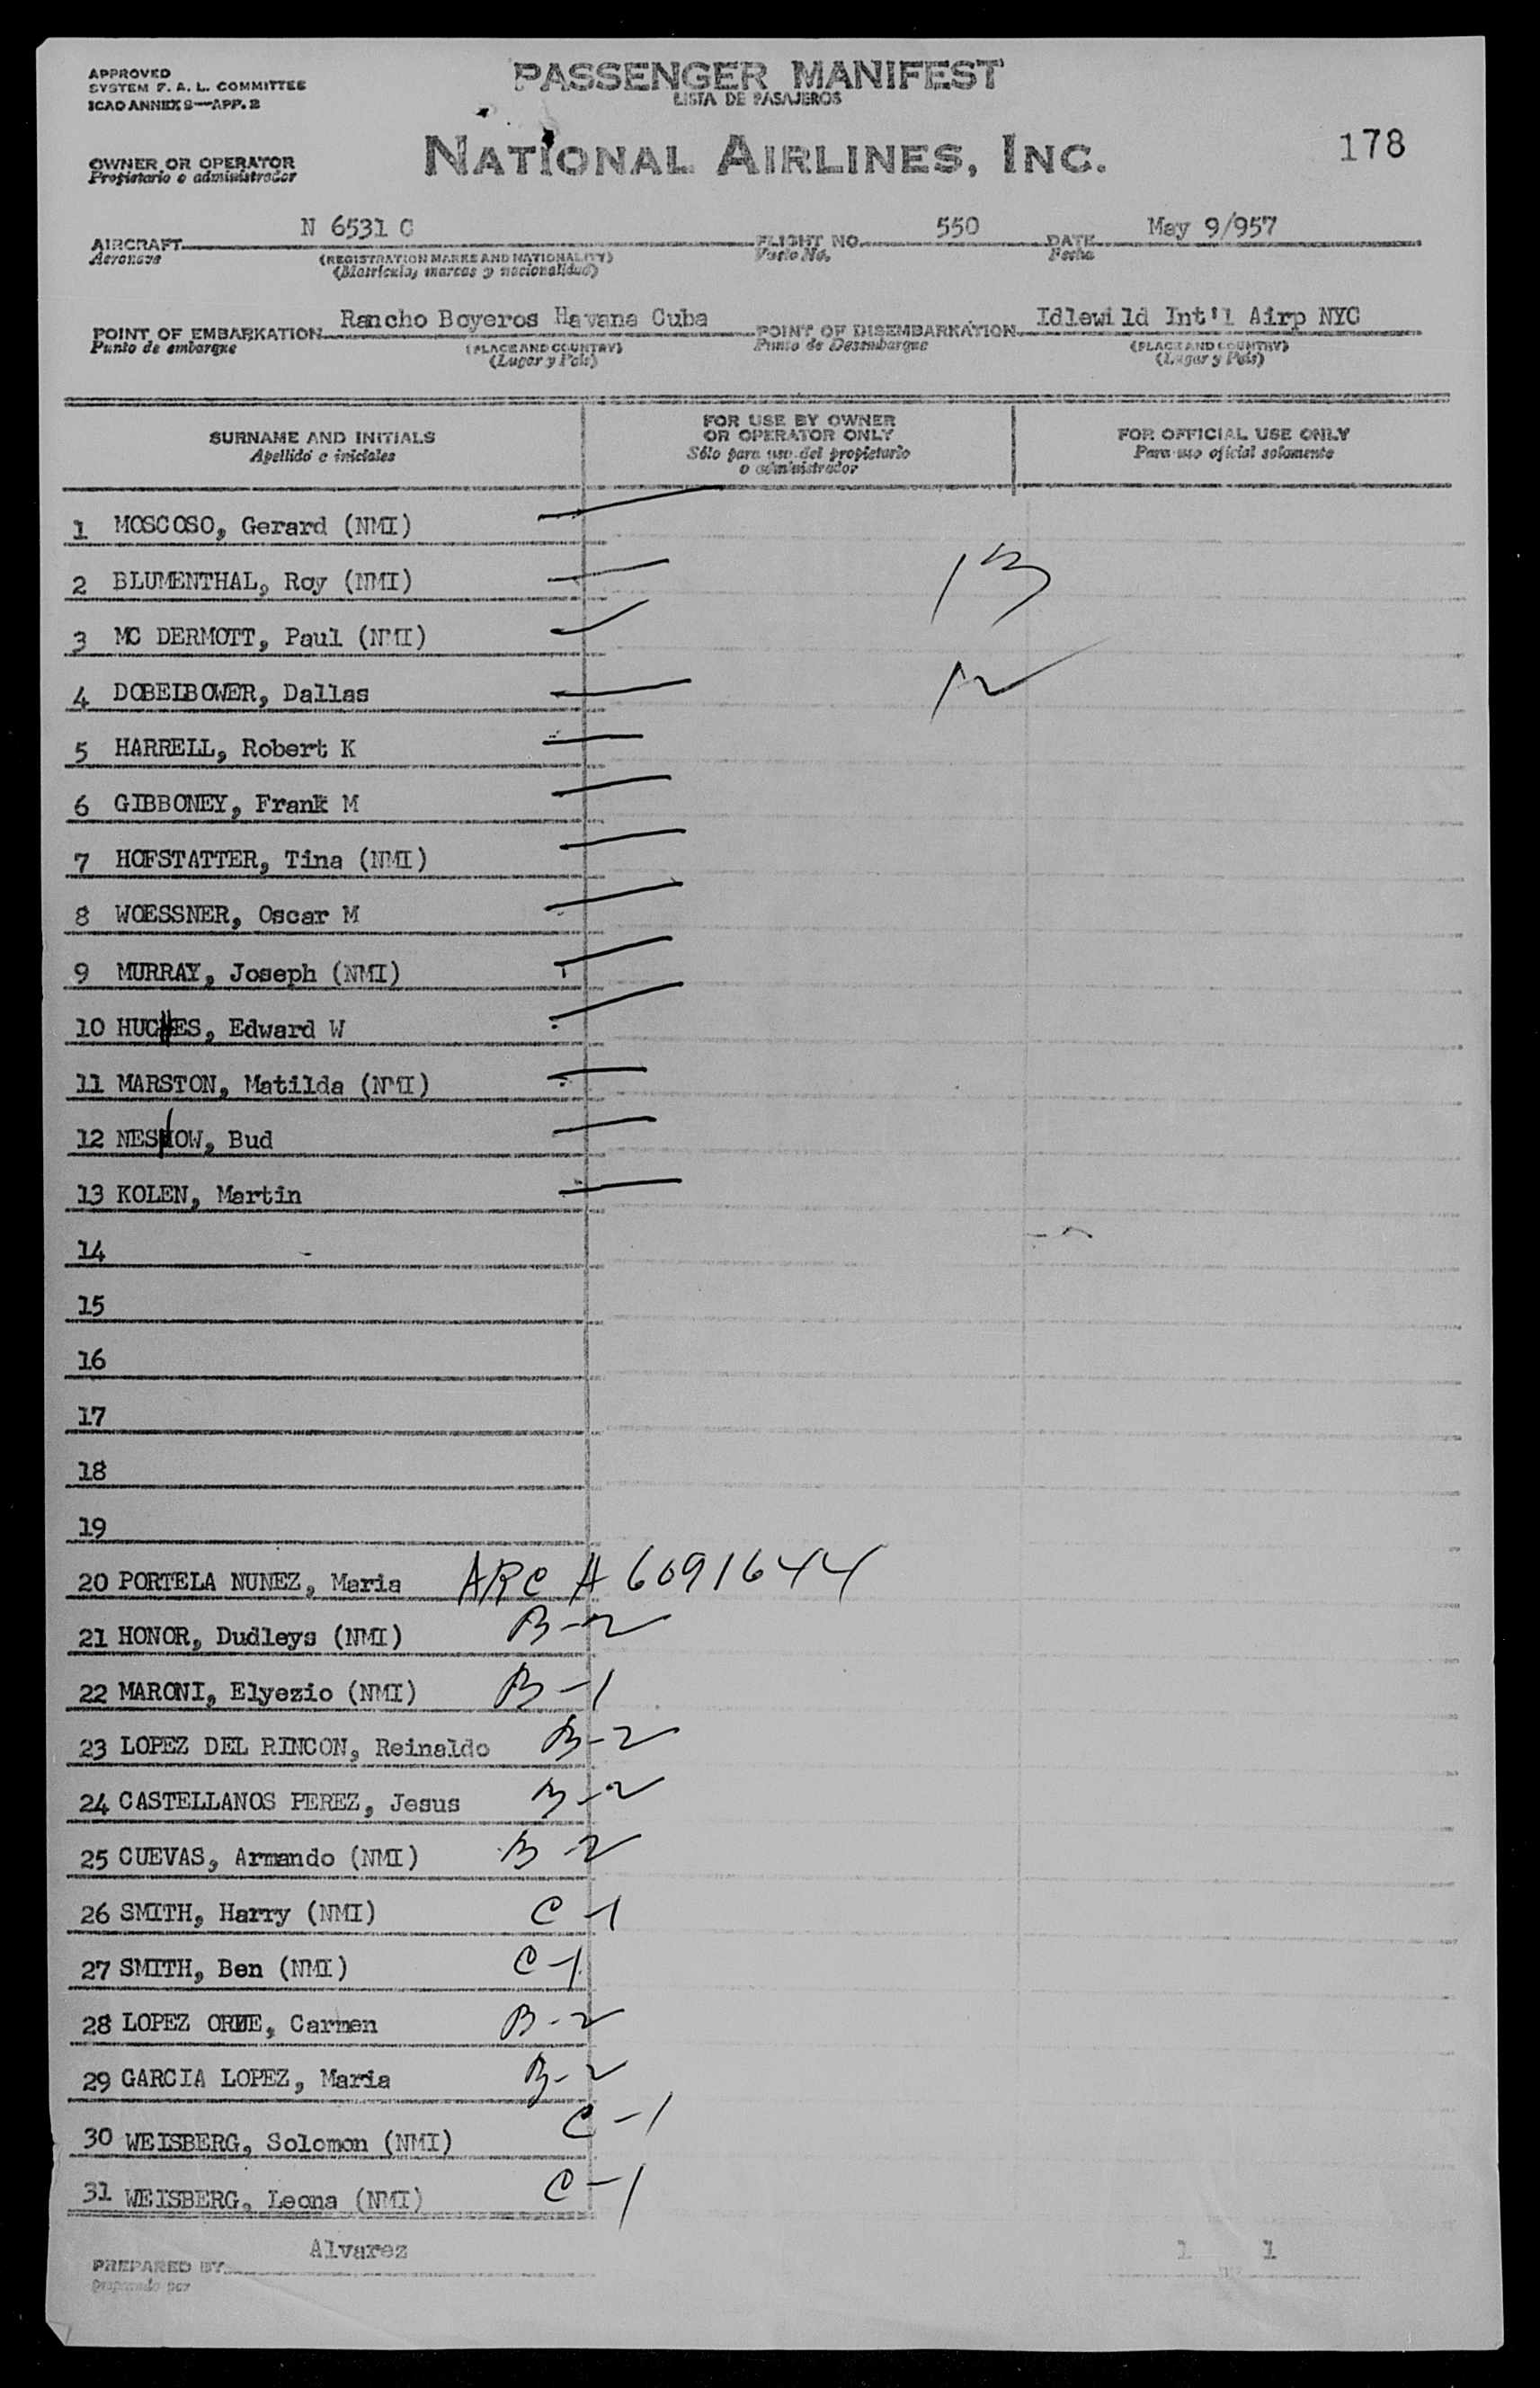 APPROVED
SYSTEM F. A. L. COMMITTEE
ICAO ANNEX 9—APP. 2
PASSENGER MANIFEST
LISTA DE PASAJEROS
178
OWNER OR OPERATOR
Propietario o administrador
NATIONAL AIRLINES, INC.
AIRCRAFT N 6531 C FLIGHT NO. 550 DATE May 9/957
Aeronave (REGISTRATION MARKS AND NATIONALITY) Vuelo No. Fecha
(Matricula, marcas y nacionalidad)
POINT OF EMBARKATION Rancho Boyeros Havana Cuba POINT OF DISEMBARKATION Idlewild Int'l Airp NYC
Punto de embarque (PLACE AND COUNTRY) Punto de Desembarque (PLACE AND COUNTRY)
(Lugar y Pais) (Lugar y Pais)
SURNAME AND INITIALS FOR USE BY OWNER OR OPERATOR ONLY FOR OFFICIAL USE ONLY
Apellido e iniciales Sólo para uso del propietario o administrador Para uso oficial solamente
1 MOSCOSO, Gerard (NMI)
2 BLUMENTHAL, Roy (NMI) 13
3 MC DERMOTT, Paul (NMI)
4 DOBELBOWER, Dallas 12
5 HARRELL, Robert K
6 GIBBONEY, Frank M
7 HOFSTATTER, Tina (NMI)
8 WOESSNER, Oscar M
9 MURRAY, Joseph (NMI)
10 HUGHES, Edward W
11 MARSTON, Matilda (NMI)
12 Bud
13 KOLEN, Martin
14
15
16
17
18
19
20 PORTELA NUNEZ, Maria ARC A 6091644
21 HONOR, Dudleys (NMI) B-2
22 MARONI, Elyezio (NMI) B-1
23 LOPEZ DEL RINCON, Reinaldo B-2
24 CASTELLANOS PEREZ, Jesus B-2
25 CUEVAS, Armando (NMI) B-2
26 SMITH, Harry (NMI) C-1
27 SMITH, Ben (NMI) C-1
28 LOPEZ Carmen B-2
29 GARCIA LOPEZ, Maria B-2
30 WEISBERG, Solomon (NMI) C-1
31 WEISBERG, Leona (NMI) C-1
PREPARED BY Alvarez 1 1
preparado por